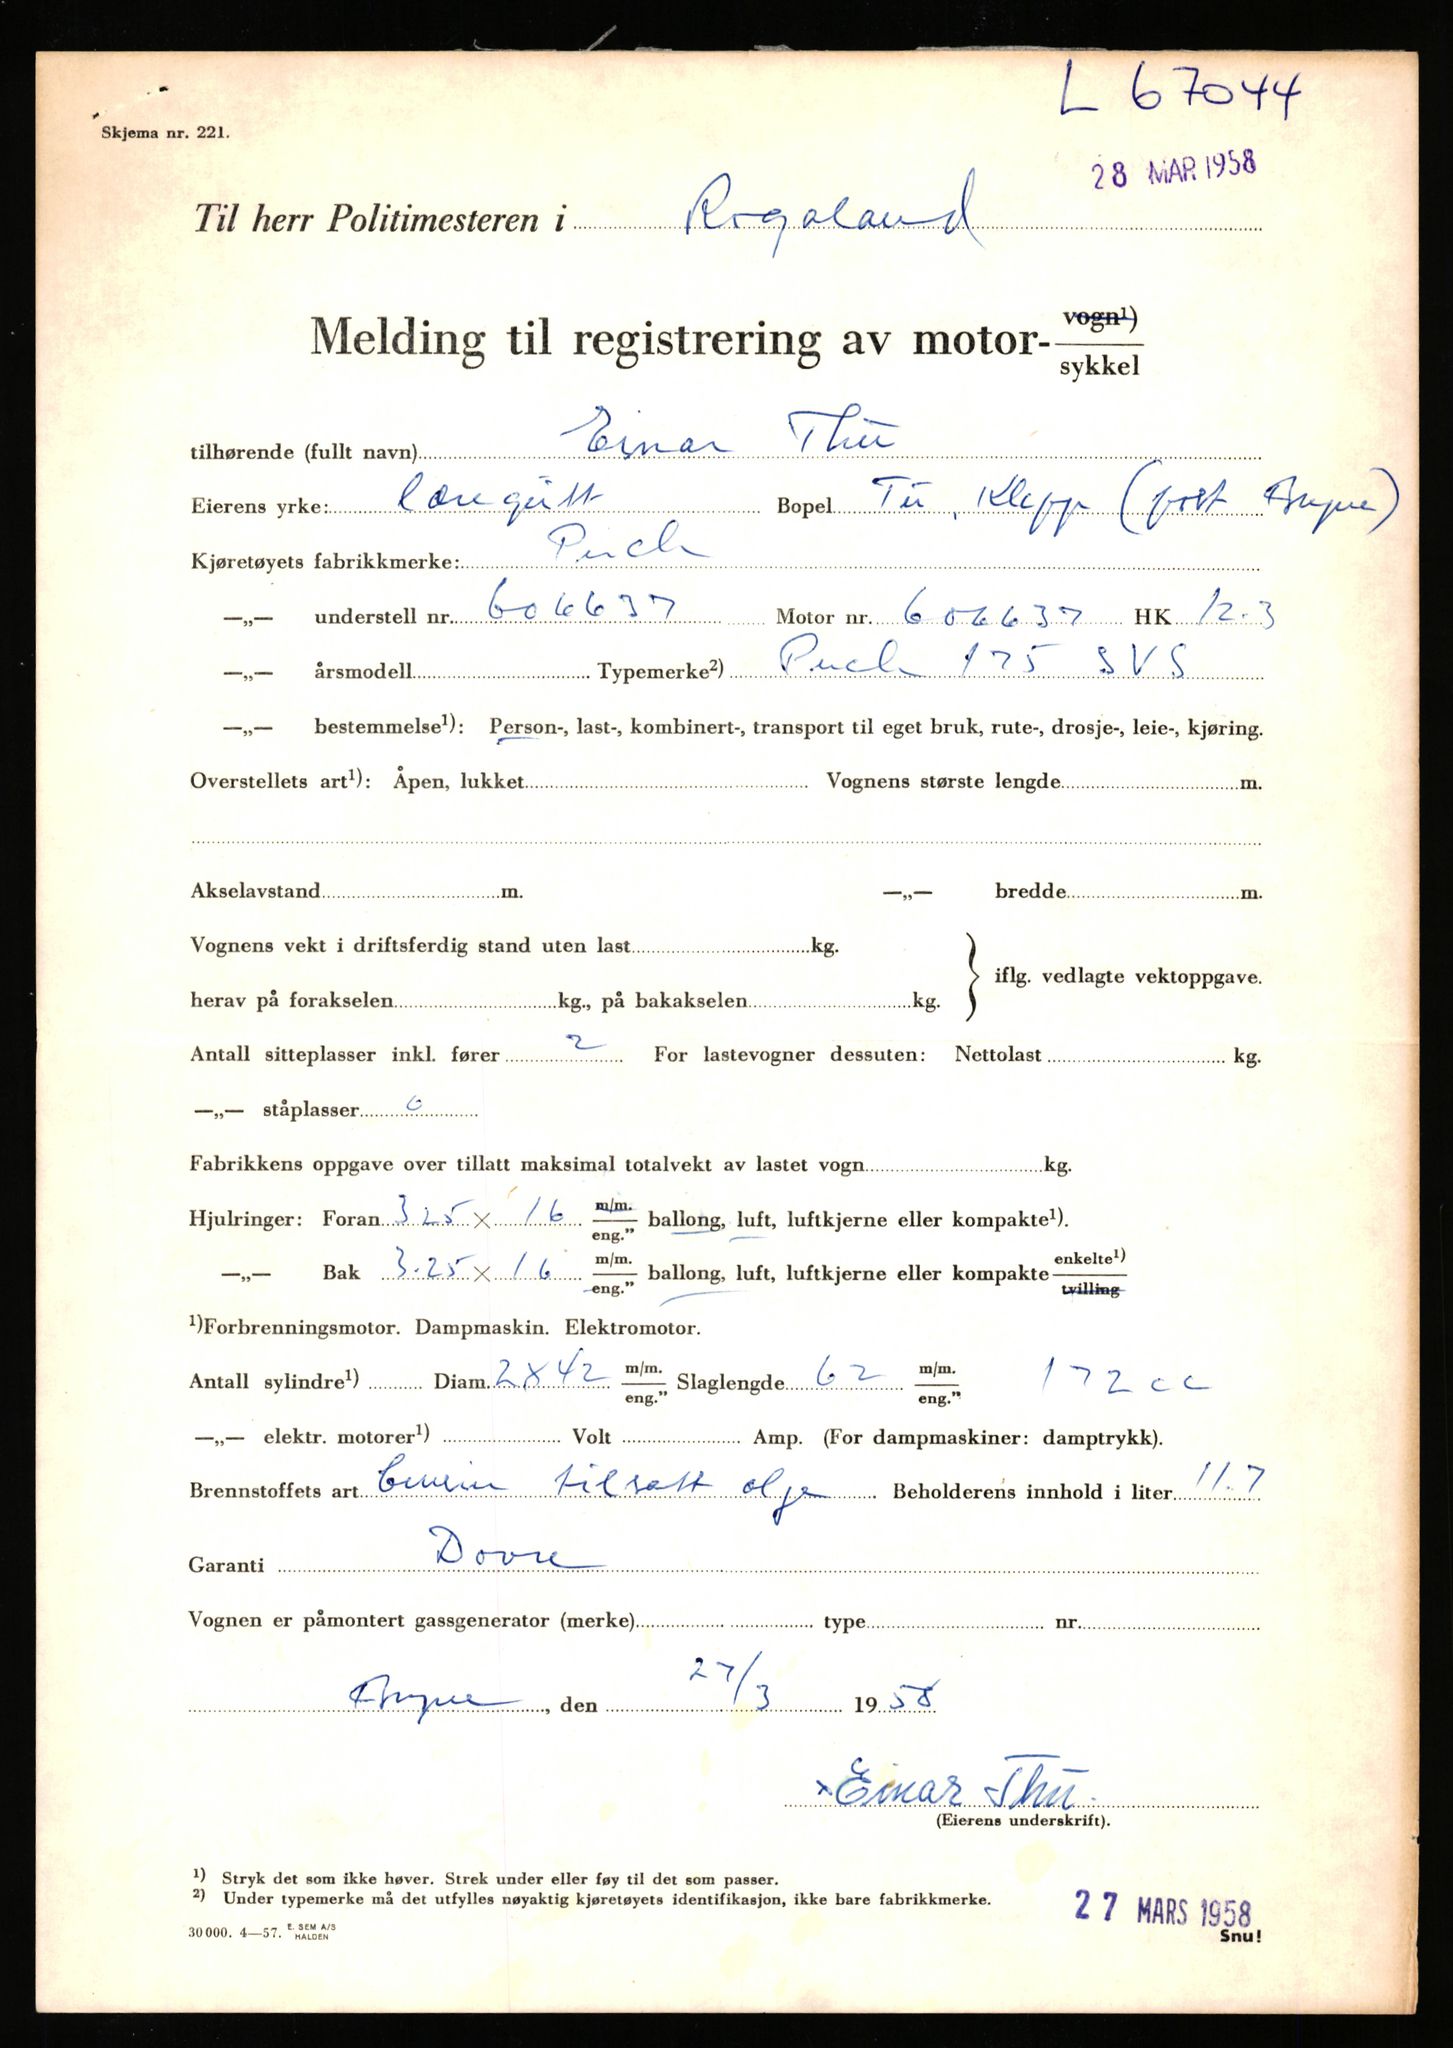 L 67044
Skjema nr. 221.
28 MAR 1958
Til herr Politimesteren i Rogaland
Melding til registrering av motor- vogn¹) sykkel
tilhørende (fullt navn) Einar Thu
Eierens yrke: læregutt Bopel Tu, Klepp (post Bryne)
Kjøretøyets fabrikkmerke: Puch
—„— understell nr. 606637 Motor nr. 606637 HK 12.3
—„— årsmodell Typemerke²) Puch 175 SVS
—„— bestemmelse¹): Person-, last-, kombinert-, transport til eget bruk, rute-, drosje-, leie-, kjøring.
Overstellets art¹): Åpen, lukket Vognens største lengde m.
Akselavstand m. —„— bredde m.
Vognens vekt i driftsferdig stand uten last kg.
herav på forakselen kg., på bakakselen kg. iflg. vedlagte vektoppgave.
Antall sitteplasser inkl. fører 2 For lastevogner dessuten: Nettolast kg.
—„— ståplasser 0
Fabrikkens oppgave over tillatt maksimal totalvekt av lastet vogn kg.
Hjulringer: Foran 3.25 × 16 m/m. eng.” ballong, luft, luftkjerne eller kompakte¹).
—„— Bak 3.25 × 16 m/m. eng.” ballong, luft, luftkjerne eller kompakte enkelte¹) tvilling
¹)Forbrenningsmotor. Dampmaskin. Elektromotor.
Antall sylindre¹) Diam. 2x42 m/m. eng.” Slaglengde 62 m/m. eng.” 172 cc
—„— elektr. motorer¹) Volt Amp. (For dampmaskiner: damptrykk).
Brennstoffets art bensin tilsatt olje Beholderens innhold i liter 11.7
Garanti Dovre
Vognen er påmontert gassgenerator (merke) type nr.
Bryne, den 27/3 1958
x Einar Thu.
(Eierens underskrift).
¹) Stryk det som ikke høver. Strek under eller føy til det som passer.
²) Under typemerke må det utfylles nøyaktig kjøretøyets identifikasjon, ikke bare fabrikkmerke.
27 MARS 1958
30 000. 4—57. E. SEM A/S HALDEN
Snu!